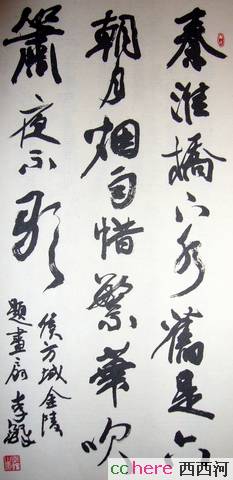 秦淮橋下水舊是六
朝月烟雨惜繁華吹
簫夜不歇
侯方域金陵
題畫扇
cchere 西西河